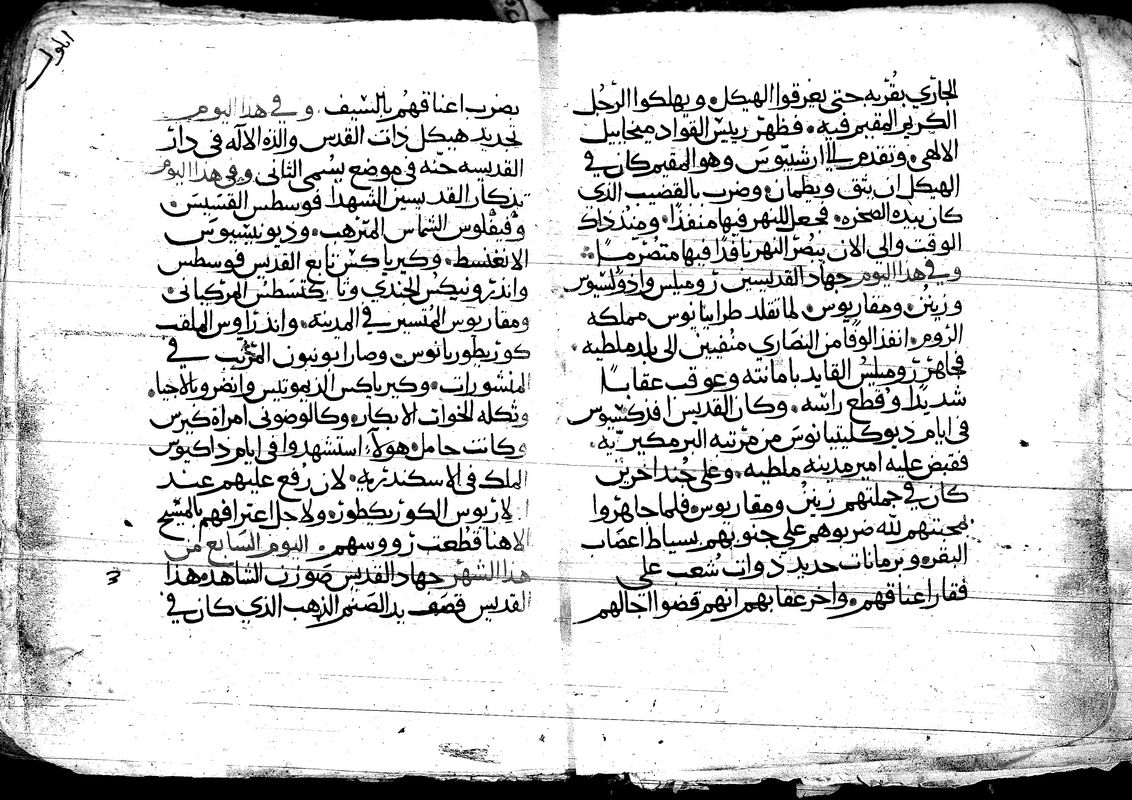 الجاري بقربه حتى يغرقوا الهيكل. ويهلكوا الرجل
الكريم المقيم فيه. فظهر رييس القواد ميخاييل
الالهي. وتقدم الي ارشيبوس وهو المقيم كان في
الهيكل ان يثق ويطمان. وضرب بالقضيب الذي
كان بيده الصخره. فجعل للنهر فيها منفذا. ومنذ ذاك
الوقت والى الان يبصر النهر نافذا فيها متصرما.
وفي هذا اليوم جهاد القديسين روميلس واذوكسيوس
وزينن. ومقاريوس. لما تقلد طرايانوس مملكه
الروم. انفذ الوفا من النصاري منفيين الى بلد ملطيه.
فجاهر روميلس القايد بامانته وعوقب عقابا
شديدا وقطع راسه. وكان القديس افذكسيوس
في ايام ديوكليتيانوس من مرتبه
فقبض عليه امير مدينه ملطيه. وعلى جند اخرين
كان في جملتهم زينن ومقاريوس. فلما جاهروا
بمحبتهم لله ضربوهم على جنوبهم بسياط اعصاب
البقر. وبرمانات حديد ذوات شعب على
فقار اعناقهم. واخر عقابهم انهم قضوا اجالهم
ايلول
بضرب اعناقهم بالسيف. وفي هذا اليوم
تجديد هيكل ذات القدس والدة الاله في دار
القديسه حنه في موضع يسمى الثاني. وفي هذا اليوم
تذكار القديسين الشهدا فوسطس القسيس.
وفيفلوس الشماس المترهب. وديونيسيوس
الاناغنسط. وكيرياكس تابع القديس فوسطس
واندرونيكس الجندي
ومقاريوس في المدينه. واندراوس الملقب
كوريطوريانوس. وصارابونيون المرتب في
المنشورات. وكيرياكس الذيموتيس
وثكله اخوات الابكار. وكالوضوني امراة كيرس
وكانت حامل. هولاء استشهدوا في ايام داكيوس
الملك في الاسكندريه. لان رفع عليهم عند
ولاجل اعترافهم بالمسيح
الاهنا قطعت رووسهم. اليوم السابع من
هذا الشهر جهاد القديس صوزن الشاهد. هذا
القديس قصف يد الصنم الذهب الذي كان في
3